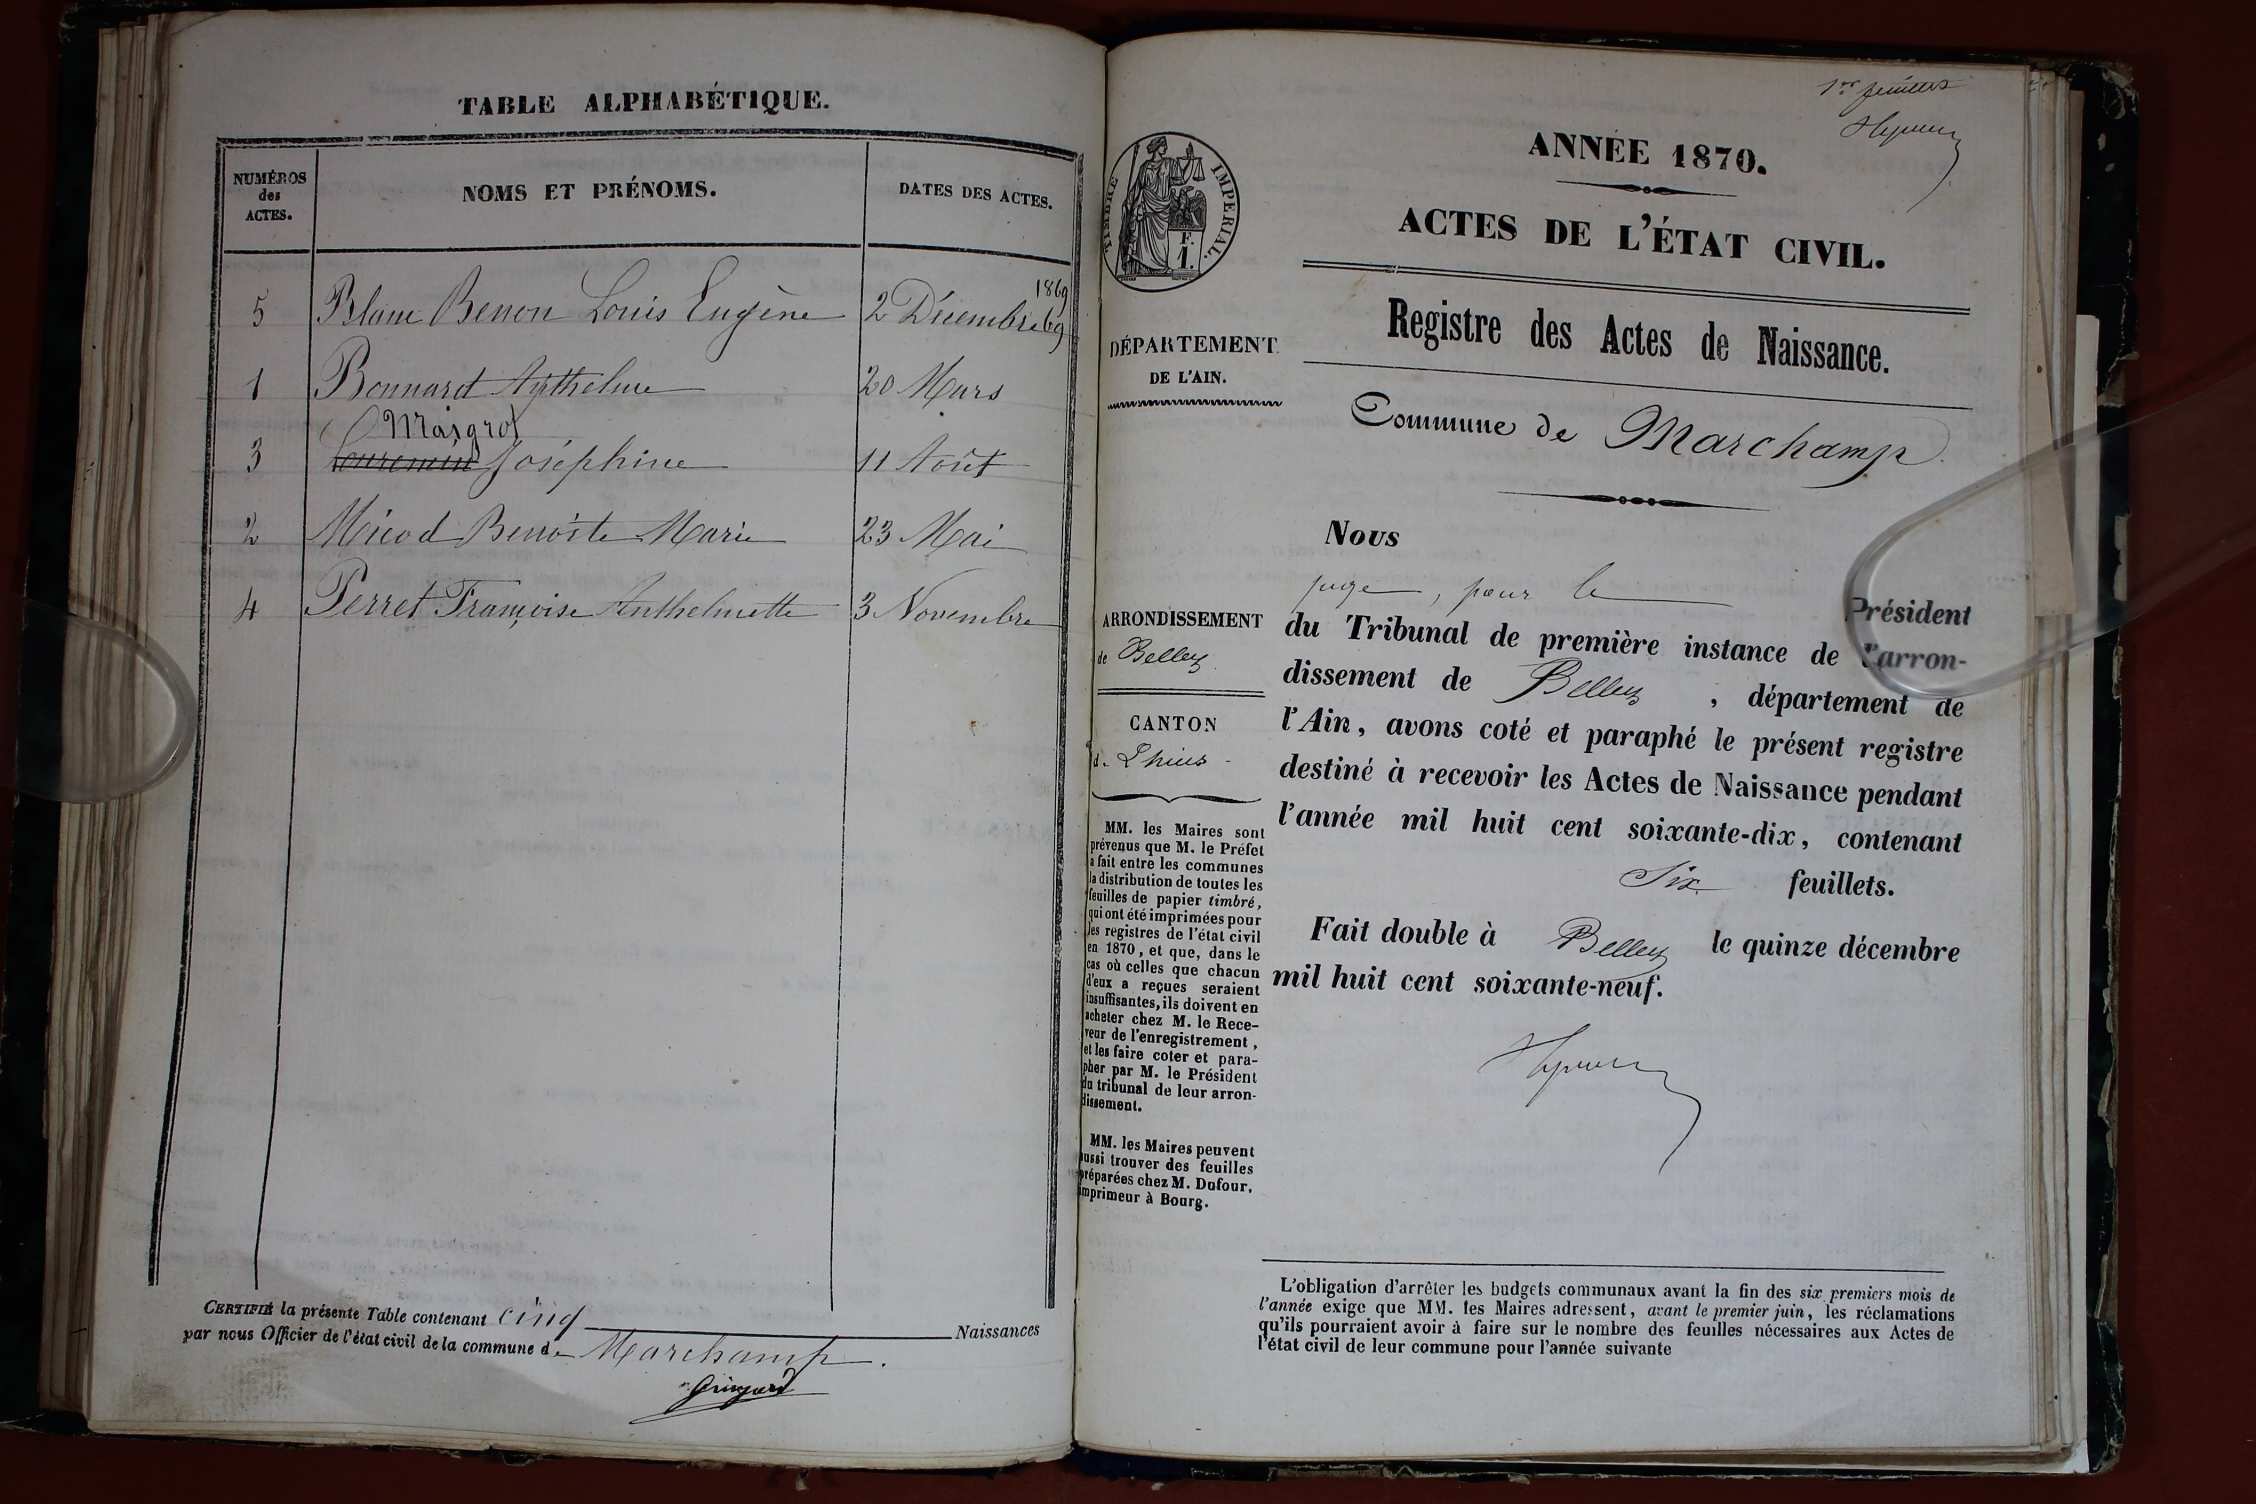 TABLE ALPHABÉTIQUE.
NUMÉROS des ACTES.
NOMS ET PRÉNOMS.
DATES DES ACTES.
5 Blanc Benon Louis Eugène 2 Décembre 69 1869
1 Bonnard Anthelme 20 Mars
Maigrot
3 Joséphine 11 Août
2 Micod Benoîte Marie 23 Mai
4 Perret Françoise Anthelmette 3 Novembre
CERTIFIÉ la présente Table contenant cinq Naissances
par nous Officier de l'état civil de la commune de Marchamp.
1er feuillet
TIMBRE IMPERIAL.
F.
1.
ANNÉE 1870.
ACTES DE L'ÉTAT CIVIL.
Registre des Actes de Naissance.
Commune de Marchamp
DÉPARTEMENT
DE L'AIN.
ARRONDISSEMENT
de Belley
CANTON
d. Lhuis
MM. les Maires sont
prévenus que M. le Préfet
a fait entre les communes
la distribution de toutes les
feuilles de papier timbré,
qui ont été imprimées pour
les registres de l'état civil
en 1870, et que, dans le
cas où celles que chacun
d'eux a reçues seraient
insuffisantes, ils doivent en
acheter chez M. le Rece-
veur de l'enregistrement,
et les faire coter et para-
pher par M. le Président
du tribunal de leur arron-
dissement.
MM. les Maires peuvent
aussi trouver des feuilles
préparées chez M. Dufour,
imprimeur à Bourg.
Nous
juge, pour le Président
du Tribunal de première instance de l'arron-
dissement de Belley, département de
l'Ain, avons coté et paraphé le présent registre
destiné à recevoir les Actes de Naissance pendant
l'année mil huit cent soixante-dix, contenant
Six feuillets.
Fait double à Belley le quinze décembre
mil huit cent soixante-neuf.
L'obligation d'arrêter les budgets communaux avant la fin des six premiers mois de
l'année exige que MM. les Maires adressent, avant le premier juin, les réclamations
qu'ils pourraient avoir à faire sur le nombre des feuilles nécessaires aux Actes de
l'état civil de leur commune pour l'année suivante